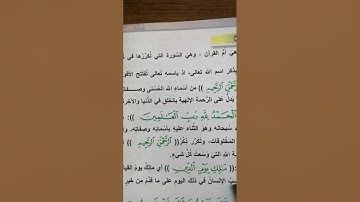 هي أم القرآن ، وهي السورة التي نُكررها في
بذكر اسم الله تعالى، اذ باسمه تعالى تُفتتح الأقو
الرَّحْمَٰنِ الرَّحِيمِ )) من أسماء الله الحُسْنى وصفـ
يدل على الرَّحمة الإلهية بالخلق في الدُّنيا والآخرة
الْحَمْدُ لِلَّهِ رَبِّ الْعَالَمِينَ )):
سبحانه وهو الثناء عليه بأسمائه وصفاته،
المخلوقات، وتكرر ذكر(( الرَّحْمَٰنِ الرَّحِيمِ ))
الله التي وسعت كُلّ شيء.
مَالِكِ يَوْمِ الدِّينِ )) أي مالك يوم القيا
الإنسان في ذلك اليوم على ما قدّم من خير